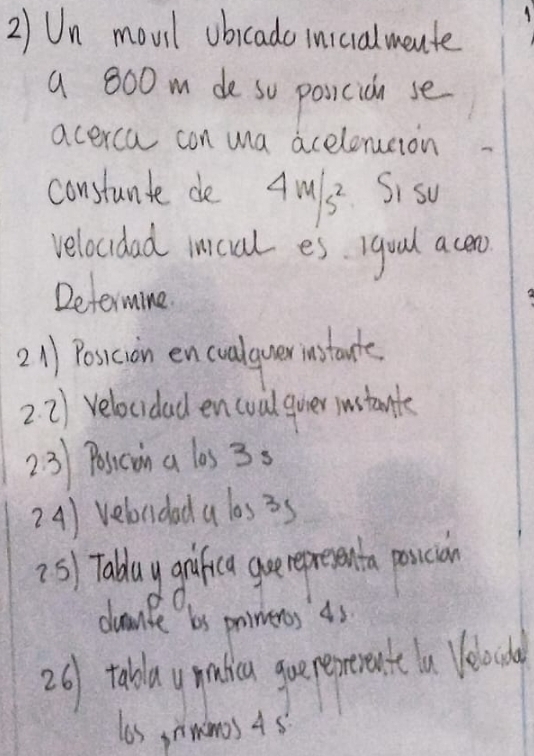 2) Un movil ubicado inicialmente
a 800 m de su posición se
acerca con una aceleración
constante de 4 m/s². Si su
velocidad inicial es igual a cero.
Determine.
2.1) Posición en cualquier instante.
2.2) Velocidad en cualquier instante
2.3) Posición a los 3 s
2.4) Velocidad a los 3s
2.5) Tabla y gráfica que representa posición
durante los primeros 4s.
2.6) tabla y grafica que represente la Velocidad
los primeros 4 s